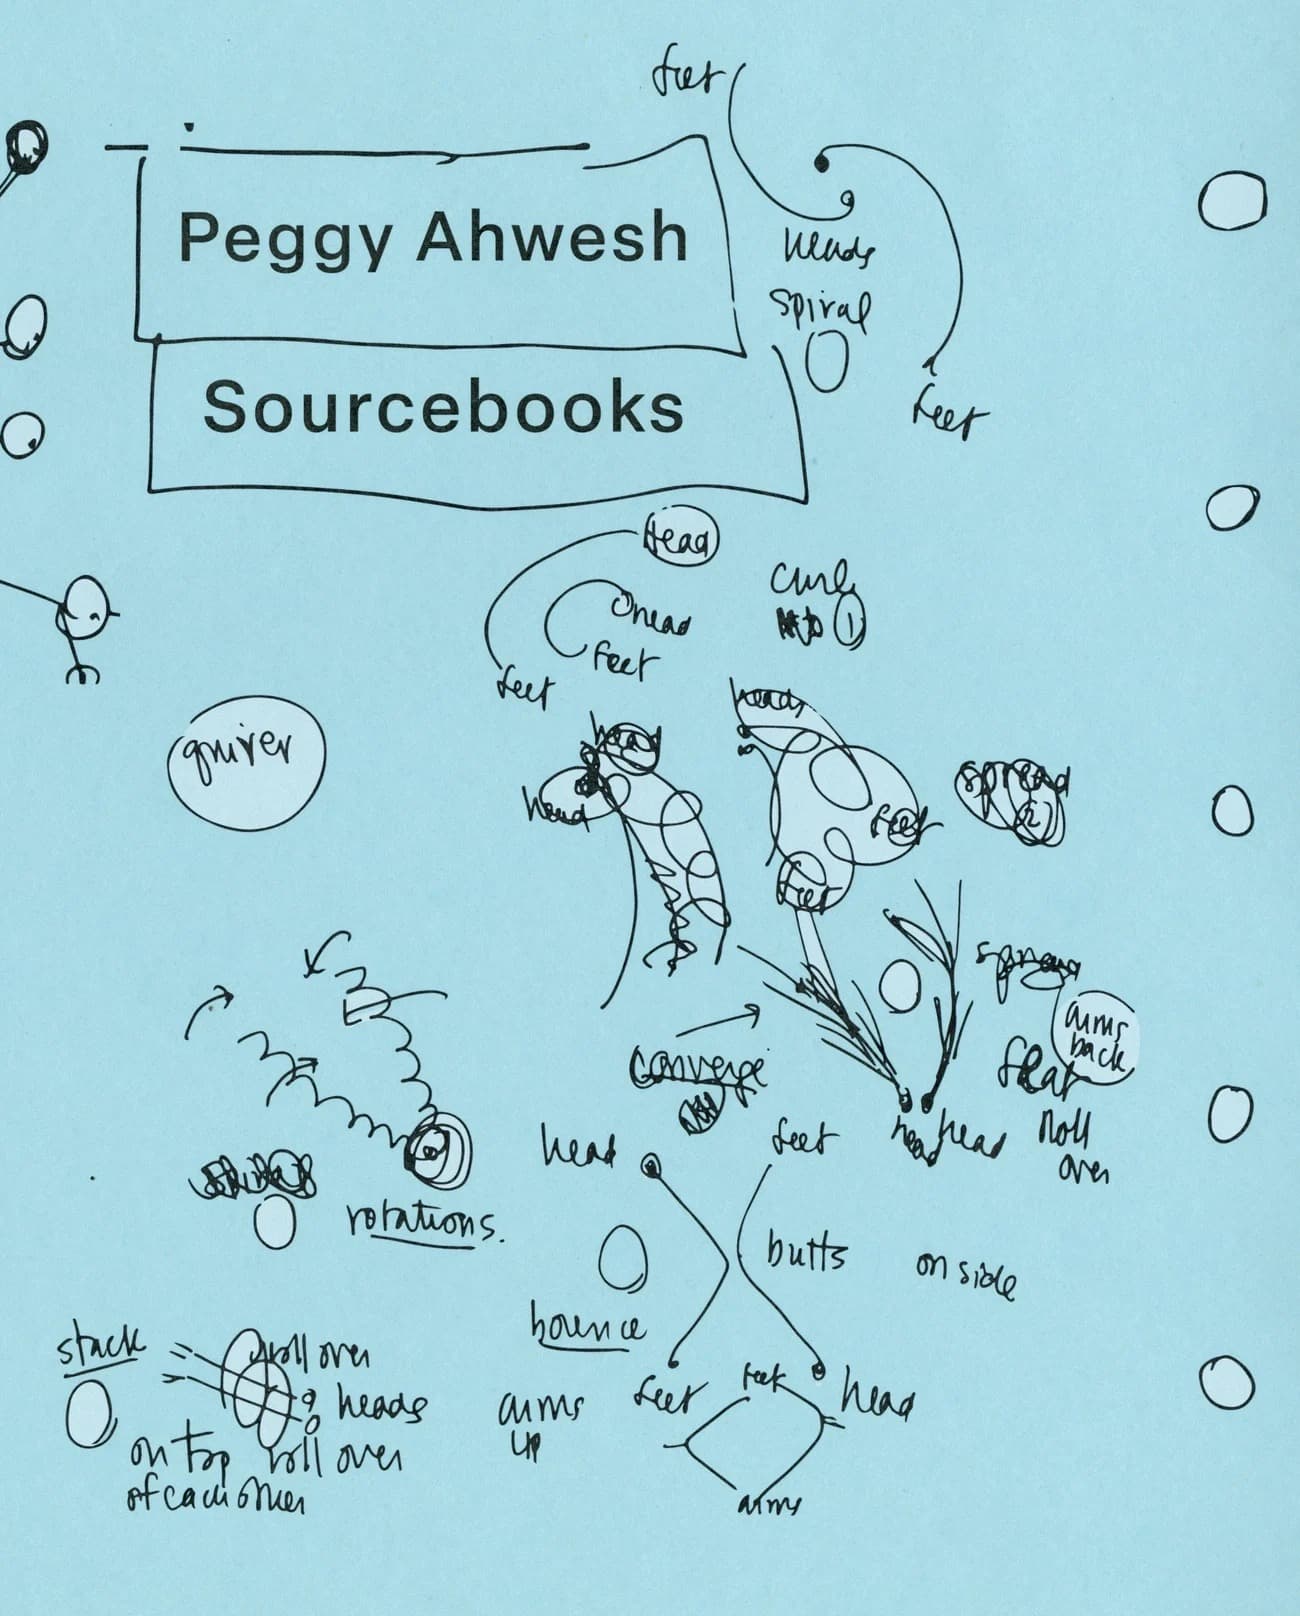 feet
Peggy Ahwesh
heads
spiral
Sourcebooks
feet
Head
curl
head
feet
feet
heads
quiver
head
spread
head
feet
feet
spread
arms
back
converge
flat
head
feet
head
head
roll
over
rotations.
butts
on side
bounce
stack
roll over
feet
feet
head
heads
arms
up
on top
roll over
of each other
arms